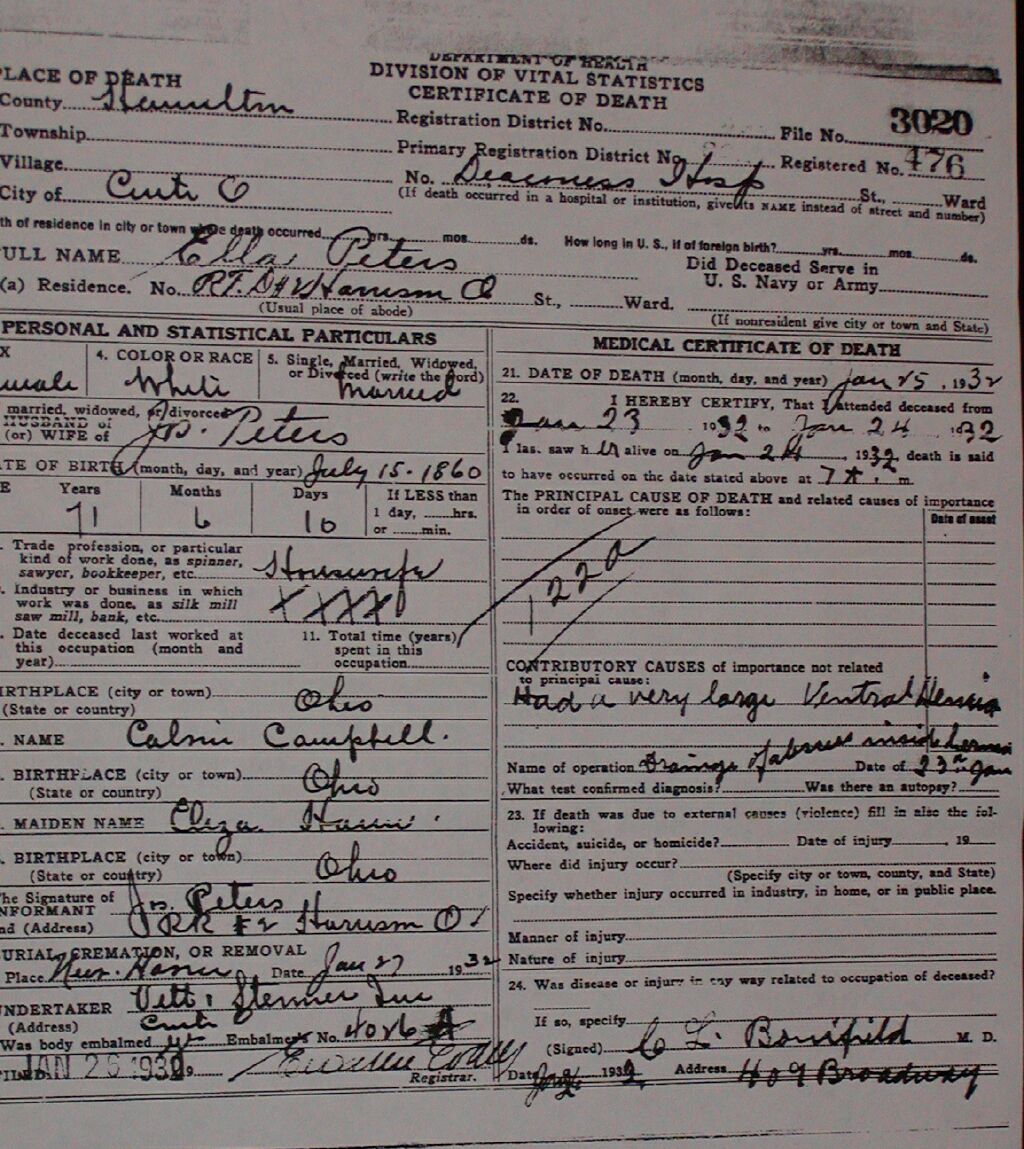 DEPARTMENT OF HEALTH
DIVISION OF VITAL STATISTICS
CERTIFICATE OF DEATH
PLACE OF DEATH
County Hamilton
Registration District No. File No. 3020
Township
Primary Registration District No. Registered No. 476
Village
No. Deaconess Hosp St., Ward
City of Cinti O
(If death occurred in a hospital or institution, give its NAME instead of street and number)
th of residence in city or town where death occurred yrs. mos. ds. How long in U. S., if of foreign birth? yrs. mos. ds.
FULL NAME Ella Peters
Did Deceased Serve in
U. S. Navy or Army
(a) Residence. No. Harrison O St., Ward.
(Usual place of abode)
(If nonresident give city or town and State)
PERSONAL AND STATISTICAL PARTICULARS
X 4. COLOR OR RACE 5. Single, Married, Widowed,
or Divorced (write the word)
male White Married
married, widowed, or divorced
HUSBAND of
(or) WIFE of Jos. Peters
ATE OF BIRTH (month, day, and year) July 15 - 1860
E Years Months Days If LESS than
71 6 10 1 day, hrs.
or min.
Trade profession, or particular
kind of work done, as spinner,
sawyer, bookkeeper, etc. Housewife
Industry or business in which
work was done, as silk mill
saw mill, bank, etc. XXXX
Date deceased last worked at
this occupation (month and
year)
11. Total time (years)
spent in this
occupation
BIRTHPLACE (city or town)
(State or country) Ohio
NAME Campbell.
BIRTHPLACE (city or town)
(State or country) Ohio
MAIDEN NAME Eliza
BIRTHPLACE (city or town)
(State or country) Ohio
The Signature of
INFORMANT Jos. Peters
nd (Address) RR #2 Harrison O.
BURIAL, CREMATION, OR REMOVAL
Place New Haven Date Jan 27 1932
UNDERTAKER
(Address) Cinti O
Was body embalmed Embalmer's No.
FILED JAN 26 1932 19
Registrar.
MEDICAL CERTIFICATE OF DEATH
21. DATE OF DEATH (month, day, and year) Jan 25, 1932
22. I HEREBY CERTIFY, That I attended deceased from
Jan 23 1932 to Jan 24 1932
I last saw her alive on Jan 24, 1932, death is said
to have occurred on the date stated above at 7 A. m.
The PRINCIPAL CAUSE OF DEATH and related causes of importance
in order of onset were as follows:
Date of onset
CONTRIBUTORY CAUSES of importance not related
to principal cause:
Had a very large Ventral Hernia
Name of operation Drainage of abscess inside hernia Date of 23rd Jan
What test confirmed diagnosis? Was there an autopsy?
23. If death was due to external causes (violence) fill in also the fol-
lowing:
Accident, suicide, or homicide? Date of injury , 19
Where did injury occur?
(Specify city or town, county, and State)
Specify whether injury occurred in industry, in home, or in public place.
Manner of injury
Nature of injury
24. Was disease or injury in any way related to occupation of deceased?
If so, specify
(Signed) C L Bonifield M. D.
Date 1932, Address 409 Broadway